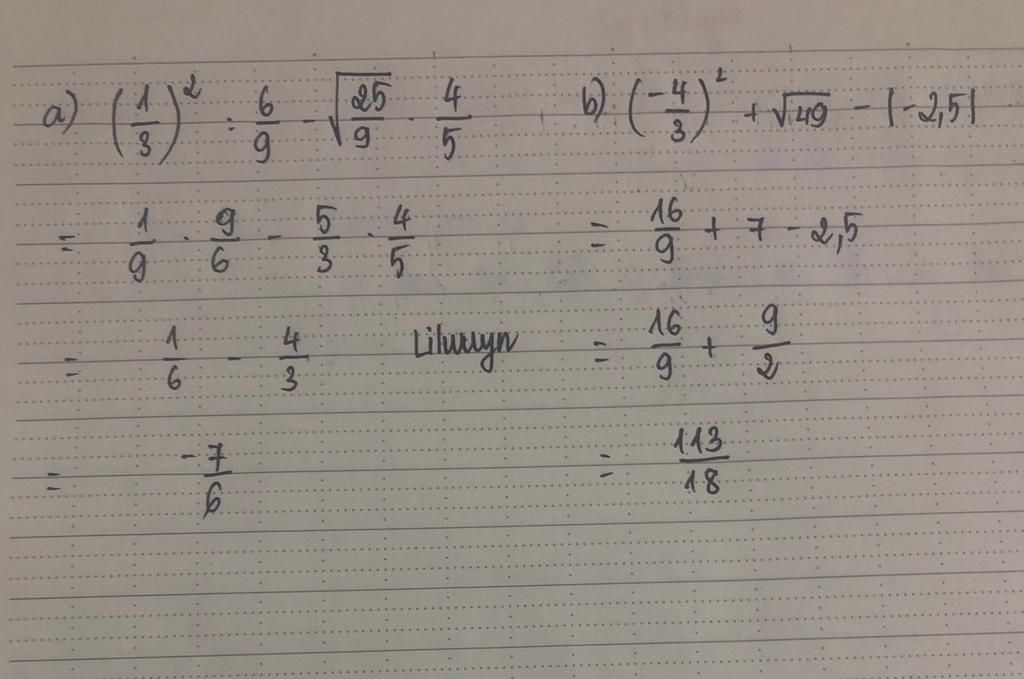 a) (1/3)² : 6/9 - √(25/9) · 4/5
= 1/9 · 9/6 - 5/3 · 4/5
= 1/6 - 4/3
= -7/6
b) (-4/3)² + √49 - |-2,5|
= 16/9 + 7 - 2,5
= 16/9 + 9/2
= 113/18